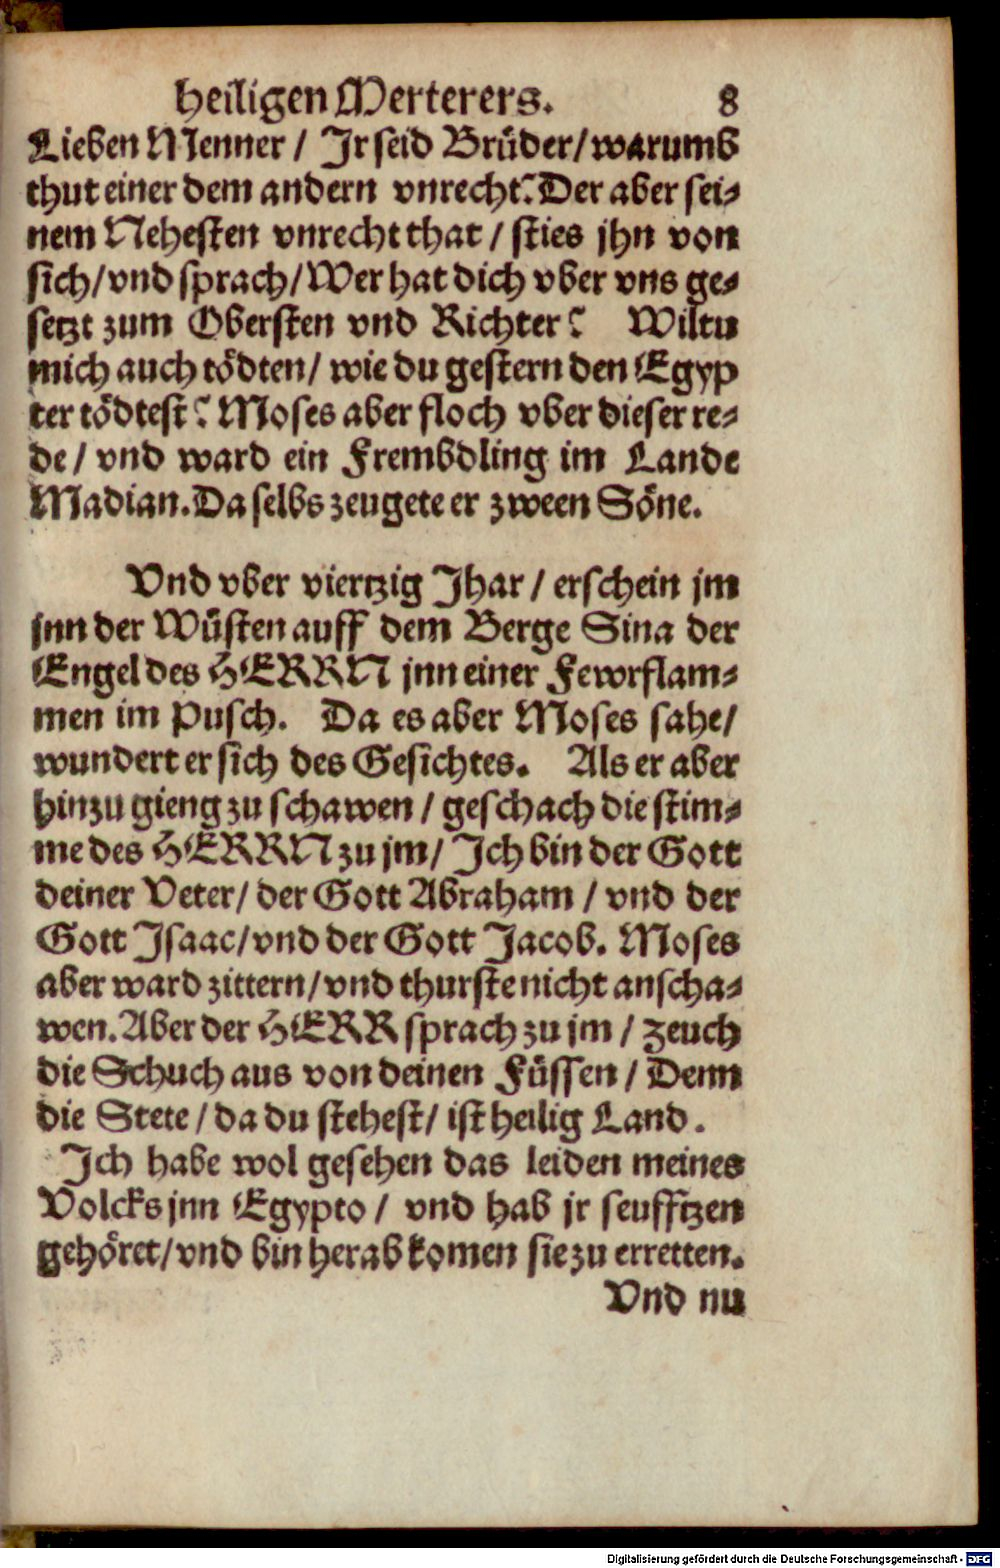 heiligen Merterers. 8
Lieben Menner / Jr seid Brüder / warumb
thut einer dem andern vnrecht? Der aber sei-
nem Nehesten vnrecht that / sties jhn von
sich / vnd sprach / Wer hat dich vber vns ge-
setzt zum Obersten vnd Richter? Wiltu
mich auch tödten / wie du gestern den Egyp
ter tödtest? Moses aber floch vber dieser re-
de / vnd ward ein Frembdling im Lande
Madian. Daselbs zeugete er zween Söne.
Vnd vber viertzig Jhar / erschein jm
jnn der Wüsten auff dem Berge Sina der
Engel des HERRN jnn einer Fewrflam-
men im Pusch. Da es aber Moses sahe /
wundert er sich des Gesichtes. Als er aber
hinzu gieng zu schawen / geschach die stim-
me des HERRN zu jm / Jch bin der Gott
deiner Veter / der Gott Abraham / vnd der
Gott Jsaac / vnd der Gott Jacob. Moses
aber ward zittern / vnd thurste nicht anscha-
wen. Aber der HERR sprach zu jm / Zeuch
die Schuch aus von deinen Füssen / Denn
die Stete / da du stehest / ist heilig Land.
Jch habe wol gesehen das leiden meines
Volcks jnn Egypto / vnd hab jr seufftzen
gehöret / vnd bin herab komen sie zu erretten.
Vnd nu
Digitalisierung gefördert durch die Deutsche Forschungsgemeinschaft - DFG